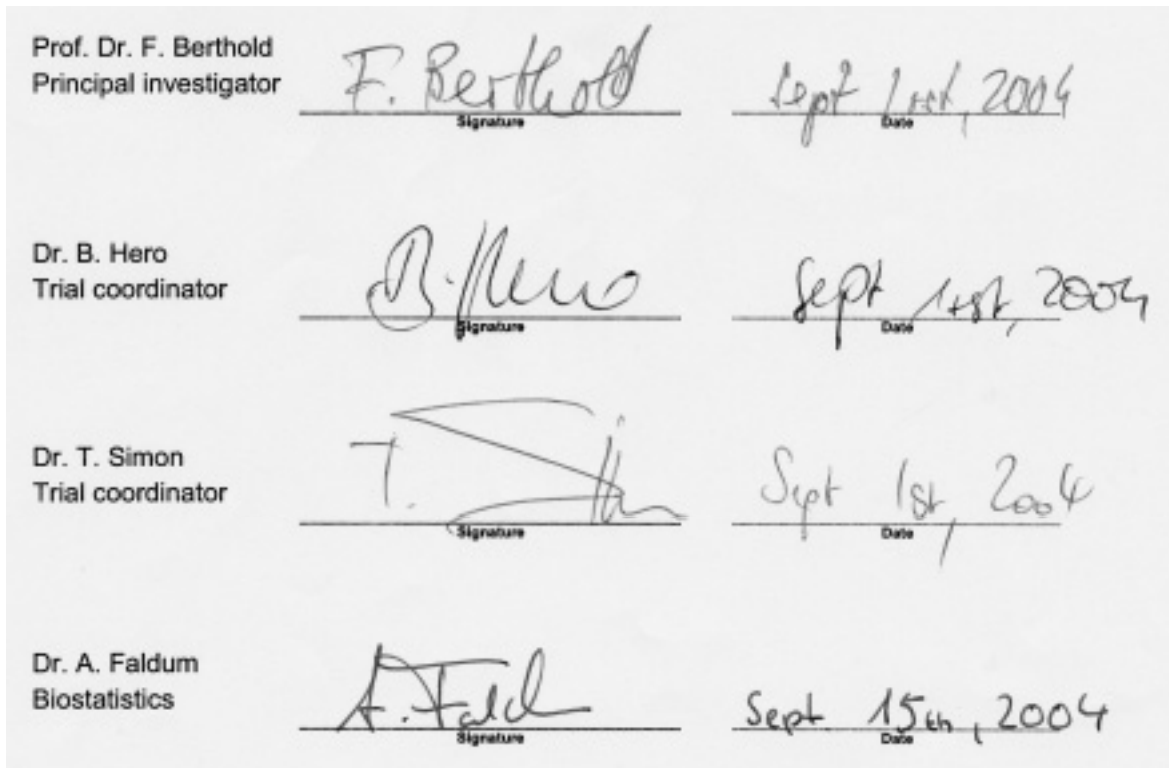 Prof. Dr. F. Berthold
Principal investigator
F. Berthold
Signature
Sept 1rst, 2004
Date
Dr. B. Hero
Trial coordinator
B. Hero
Signature
Sept 1rst, 2004
Date
Dr. T. Simon
Trial coordinator
T. Simon
Signature
Sept 1st, 2004
Date
Dr. A. Faldum
Biostatistics
A. Fald
Signature
Sept 15th, 2004
Date